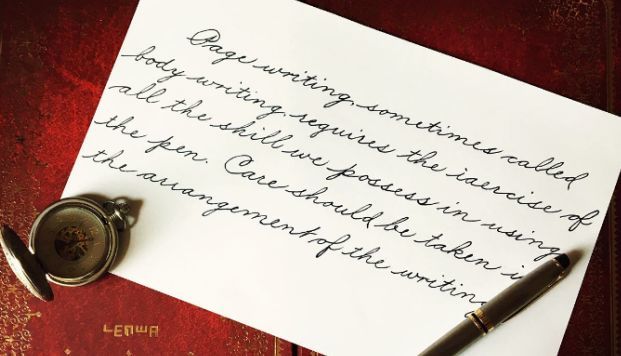 Page writing sometimes called
body writing, requires the iaercise of
all the skill we possess in using
the pen. Care should be taken i
the arrangement of the writing
LENWA